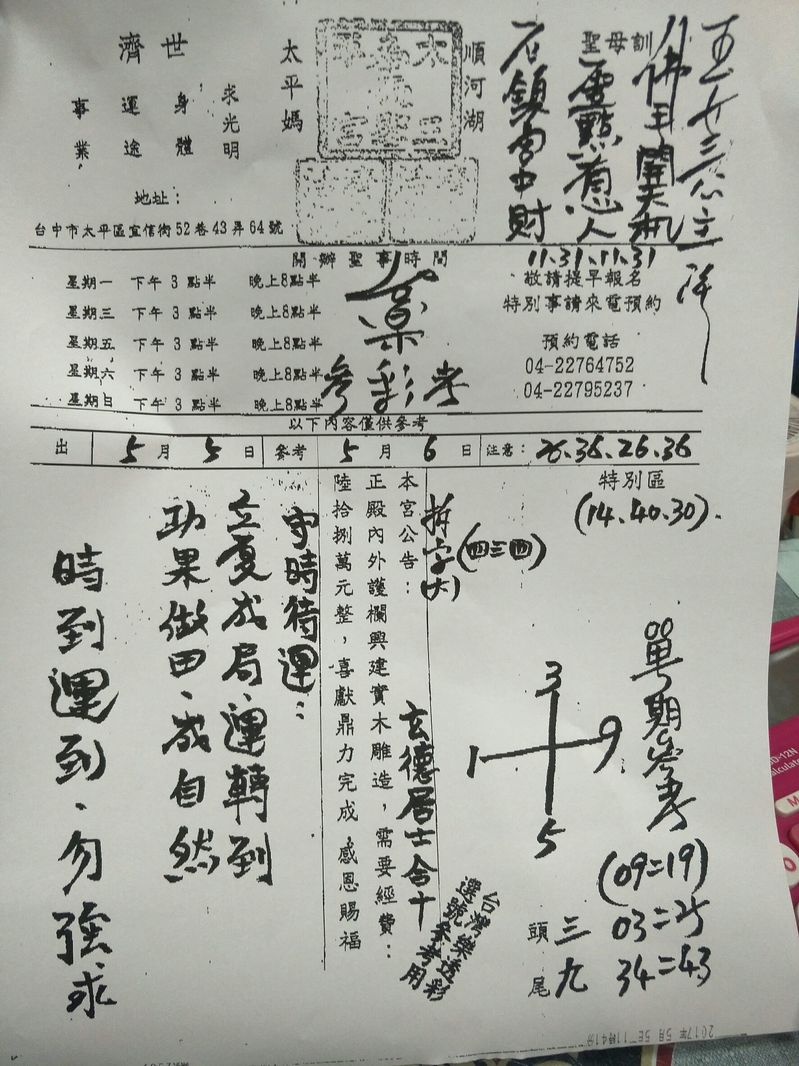 濟世
事業
運途
身體
求光明
太平媽
順河湖
聖母訓
地址：
台中市太平區宜信街52巷43弄64號
開辦聖事時間
星期一 下午3點半 晚上8點半
星期三 下午3點半 晚上8點半
星期五 下午3點半 晚上8點半
星期六 下午3點半 晚上8點半
星期日 下午3點半 晚上8點半
參彩考
11.31.11.31
敬請提早報名
特別事請來電預約
預約電話
04-22764752
04-22795237
以下內容僅供參考
出 5月5日 參考 5月6日 注意：26.36.26.36
特別區
(14.40.30).
拆字(六)
(四三四)
本宮公告：
正殿內外護欄興建實木雕造，需要經費：
陸拾捌萬元整，喜獻鼎力完成 感恩賜福
玄德居士合十
守時待運：
立夏成局、運轉到
功果做田、成自然
時到運到、勿強求
3
1 9
5
單期參考
(09=19)
03=25
34=43
頭 三
尾 九
台灣樂透彩
選號參考用
2017年 5月 5日 11時41分